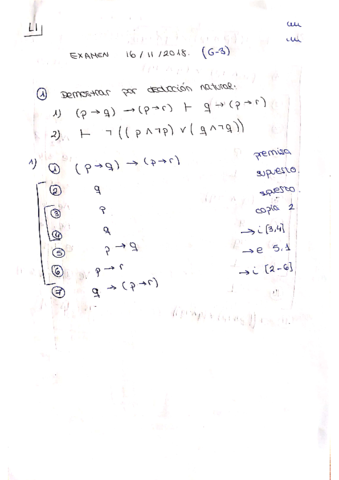 LI
EXAMEN 16/11/2018. (G-3)
① Demostrar por deducción natural.
1) (p → q) → (p → r) ⊢ q → (p → r)
2) ⊢ ¬((p ∧ ¬p) ∨ (q ∧ ¬q))
1) ① (p → q) → (p → r) premisa
② q supuesto.
③ p supuesto.
④ q copia 2
⑤ p → q → i [3,4]
⑥ p → r → e 5,1
⑦ q → (p → r) → i [2-6]